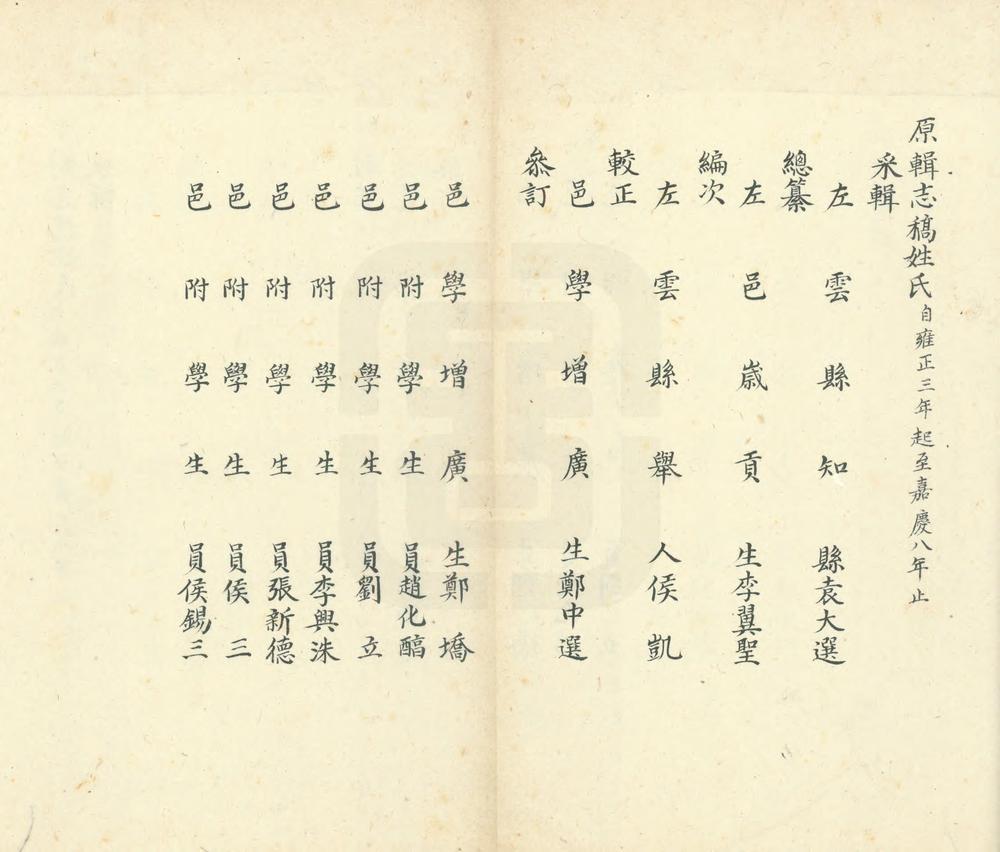 原輯志稿姓氏自雍正三年起至嘉慶八年止
采輯
左雲縣知縣袁大選
總纂
左邑歲貢生李翼聖
編次
左雲縣舉人侯凱
較正
邑學增廣生鄭中選
叅訂
邑學增廣生鄭墧
邑附學生員趙化醕
邑附學生員劉立
邑附學生員李興洙
邑附學生員張新德
邑附學生員侯三
邑附學生員侯錫三